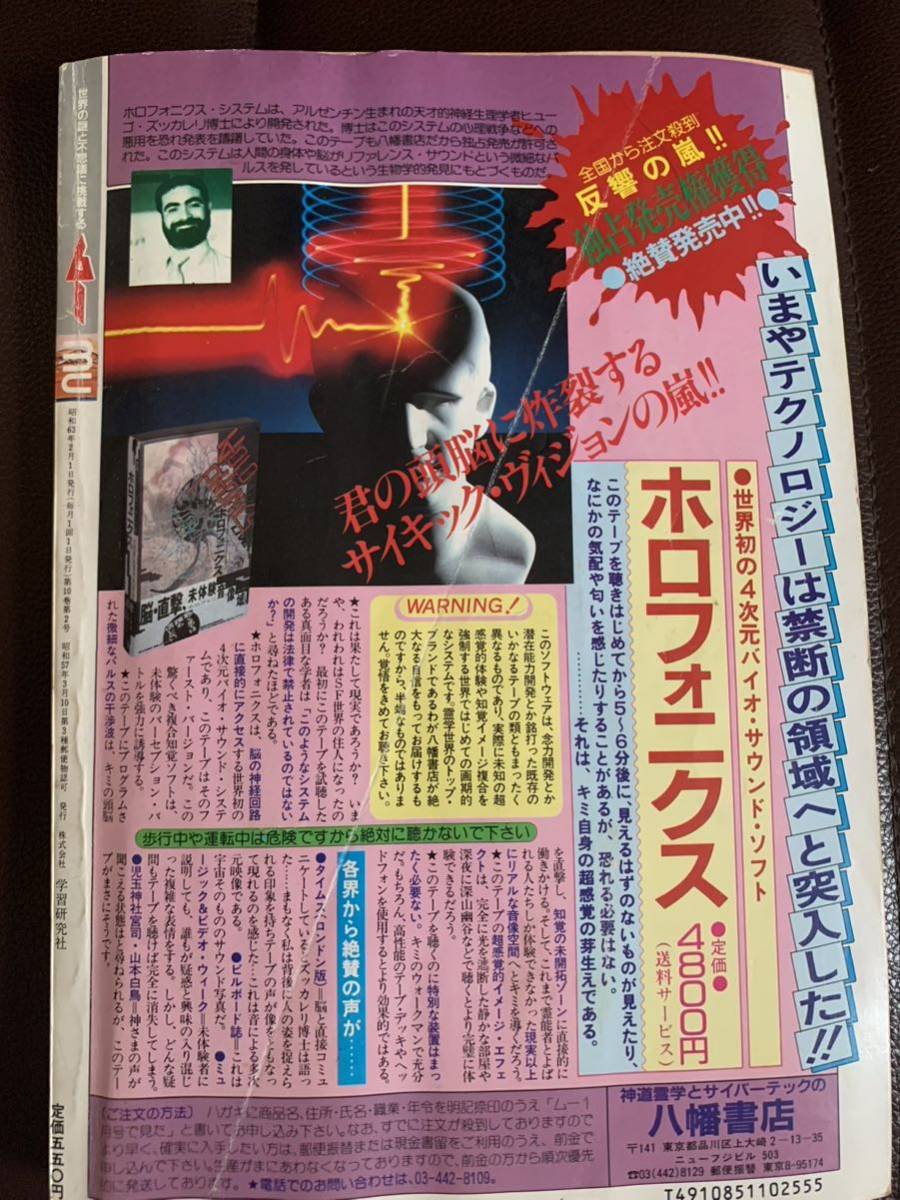 ホロフォニクス・システムは、アルゼンチン生まれの天才的神経生理学者ヒュー
ゴ・ズッカレリ博士により開発された。博士はこのシステムの心理戦争などへの
悪用を恐れ発表を躊躇していた。このテープも八幡書店だから独占発売が許可さ
れた。このシステムは人間の身体や脳がリファレンス・サウンドという微細なパ
ルスを発しているという生物学的発見にもとづくものだ。
全国から注文殺到
反響の嵐!!
独占発売権獲得
●絶賛発売中!!●
いまやテクノロジーは禁断の領域へと突入した!!
君の頭脳に炸裂する
サイキック・ヴィジョンの嵐!!
●世界初の4次元バイオ・サウンド・ソフト
ホロフォニクス
●定価●
4800円
(送料サービス)
このテープを聴きはじめてから5〜6分後に、見えるはずのないものが見えたり、
なにかの気配や匂いを感じたりすることがあるが、恐れる必要はない。
……………それは、キミ自身の超感覚の芽生えである。
ホロフォニクス
脳・直撃 未体験音像
WARNING!
このソフトウェアは、念力開発とか
潜在能力開発とか銘打った既存の
いかなるテープの類ともまったく
異なるものであり、実際に未知の超
感覚的体験や知覚イメージ複合を
強制する世界ではじめての画期的
なシステムです。霊学世界のトップ・
ブランドであるわが八幡書店が絶
大なる自信をもってお届けするも
のですから、半端なものではありま
せん。覚悟をきめてお聴き下さい。
★これは果たして現実であろうか? いま
や、われわれはSF世界の住人になったの
だろうか? 最初にこのテープを試聴した
ある真面目な学者は、「このようなシステム
の開発は法律で禁止されているのではない
か?」と尋ねたほどである。
★ホロフォニクスは、脳の神経回路
に直接的にアクセスする世界初の
4次元バイオ・サウンド・システ
ムであり、このテープはそのフ
ァースト・バージョンだ。この
驚くべき複合知覚ソフトは、
未体験のパーセプション・バ
トルを強力に誘導する。
★このテープにプログラムさ
れた微細なパルスの干渉波は、キミの頭脳
歩行中や運転中は危険ですから絶対に聴かないで下さい
を直撃し、知覚の未開拓ゾーンに直接的に
働きかける。そして、これまで霊能者とよば
れる人たちしか体験できなかった現実以上
にリアルな音像空間へとキミを導くだろう。
★このテープの超感覚的イメージ・エフェ
クトは、完全に光を遮断した静かな部屋や
深夜に深山幽谷などで聴くとより完璧に体
験できるだろう。
★このテープを聴くのに特別な装置はまっ
たく必要ない。キミのウォークマンで充分
だ。もちろん、高性能のテープ・デッキやヘッ
ドフォンを使用するとより効果的ではある。
各界から絶賛の声が…
●タイムズ(ロンドン版)=脳と直接コミュ
ニケートしているとズッカレリ博士は語っ
た……まもなく私は背後に人の姿を捉えら
れる印象を持ちテープの声が像をともなっ
て現れるのを感じた…これは音による多次
元映像である。 ●ビルボード誌=これは
宇宙そのもののサウンド写真だ。 ●ミュ
ージック&ビデオ・ウィーク=未体験者に
説明しても、誰もが疑惑と興味の入り混じ
った複雑な表情をする。しかし、どんな疑
問もテープを聴けば完全に消失してしまう。
●児玉神社宮司・山本白鳥=神さまの声が
聞こえる状態はと尋ねられるが、このテー
プがまさにそうです。
【ご注文の方法】 ハガキに商品名、住所・氏名・職業・年令を明記捺印のうえ「ムー1
月号で見た」と書いてお申し込み下さい。なお、すでに注文が殺到しておりますので
より早く、確実に入手したい方は、郵便振替または現金書留をご利用のうえ、前金で
申し込んで下さい。生産がまにあわなくなっておりますので、前金の方から順次優先
的に発送しております。★電話でのお問い合わせは、03-442-8109。
神道霊学とサイバーテックの
八幡書店
〒141 東京都品川区上大崎2-13-35
ニューフジビル 503
☎03(442)8129 郵便振替 東京8-95174
T4910851102555
世界の謎と不思議に挑戦する
ムー
mu
昭和63年2月1日発行(毎月1回1日発行)第10巻第2号 昭和57年3月10日第3種郵便物認可 発行 株式会社 学習研究社
定価五五〇円